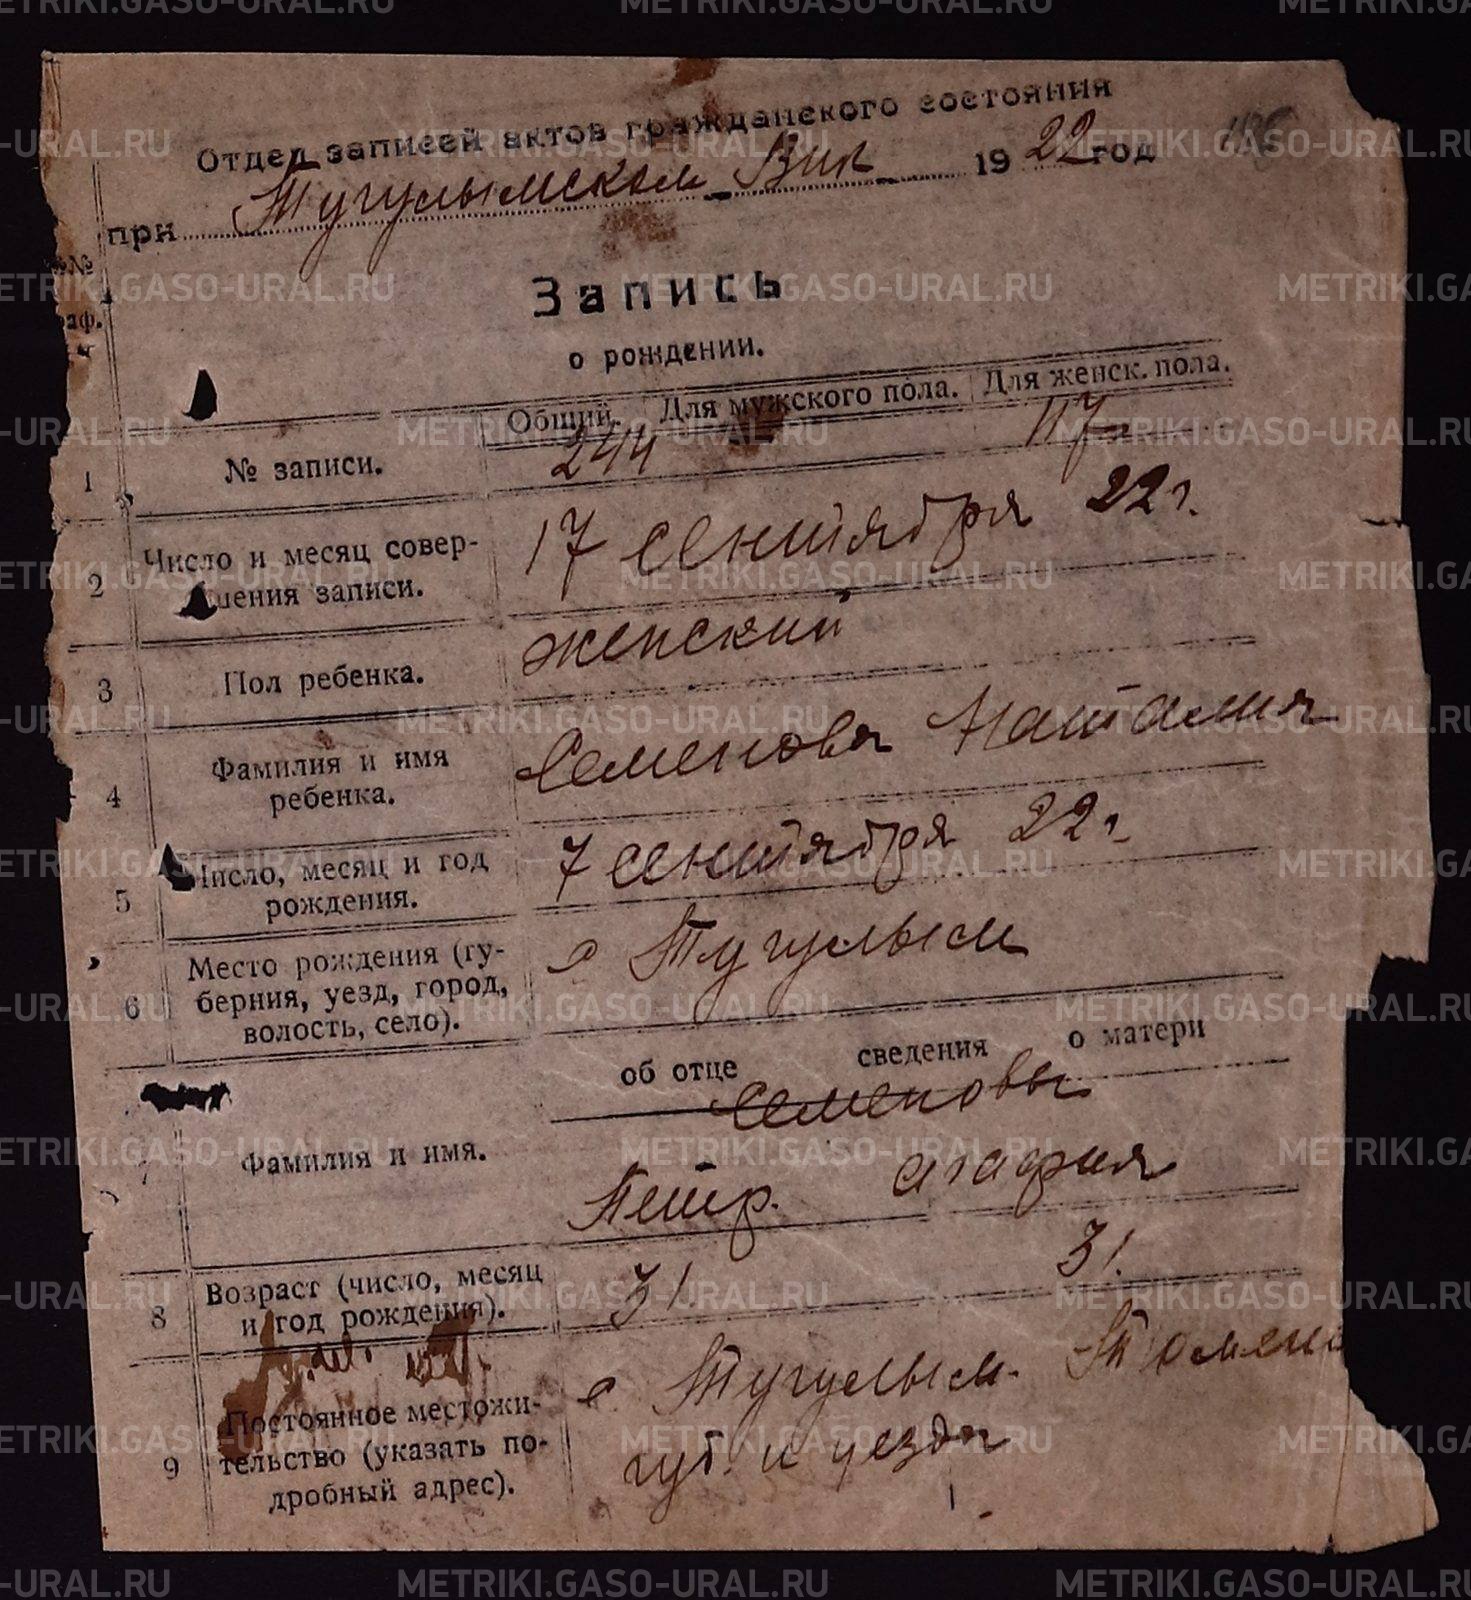 Отдел записей актов гражданского состояния
при Тугулымском Вик 1922 год
№№
Запись
о рождении.
Общий. Для мужского пола. Для женск. пола.
1 № записи. 244 117
2 Число и месяц совер-
шения записи. 17 сентября 22 г.
3 Пол ребенка. женский
4 Фамилия и имя
ребенка. Семенова Наталия
5 Число, месяц и год
рождения. 7 сентября 22 г.
6 Место рождения (гу-
берния, уезд, город,
волость, село). с Тугулым
об отце сведения о матери
Семеновы
7 Фамилия и имя. Петр. агафия
8 Возраст (число, месяц
и год рождения). 31. 31.
9 Постоянное местожи-
тельство (указать по-
дробный адрес). с. Тугулым. Тюмен
губ. и уезда
METRIKI.GASO-URAL.RU